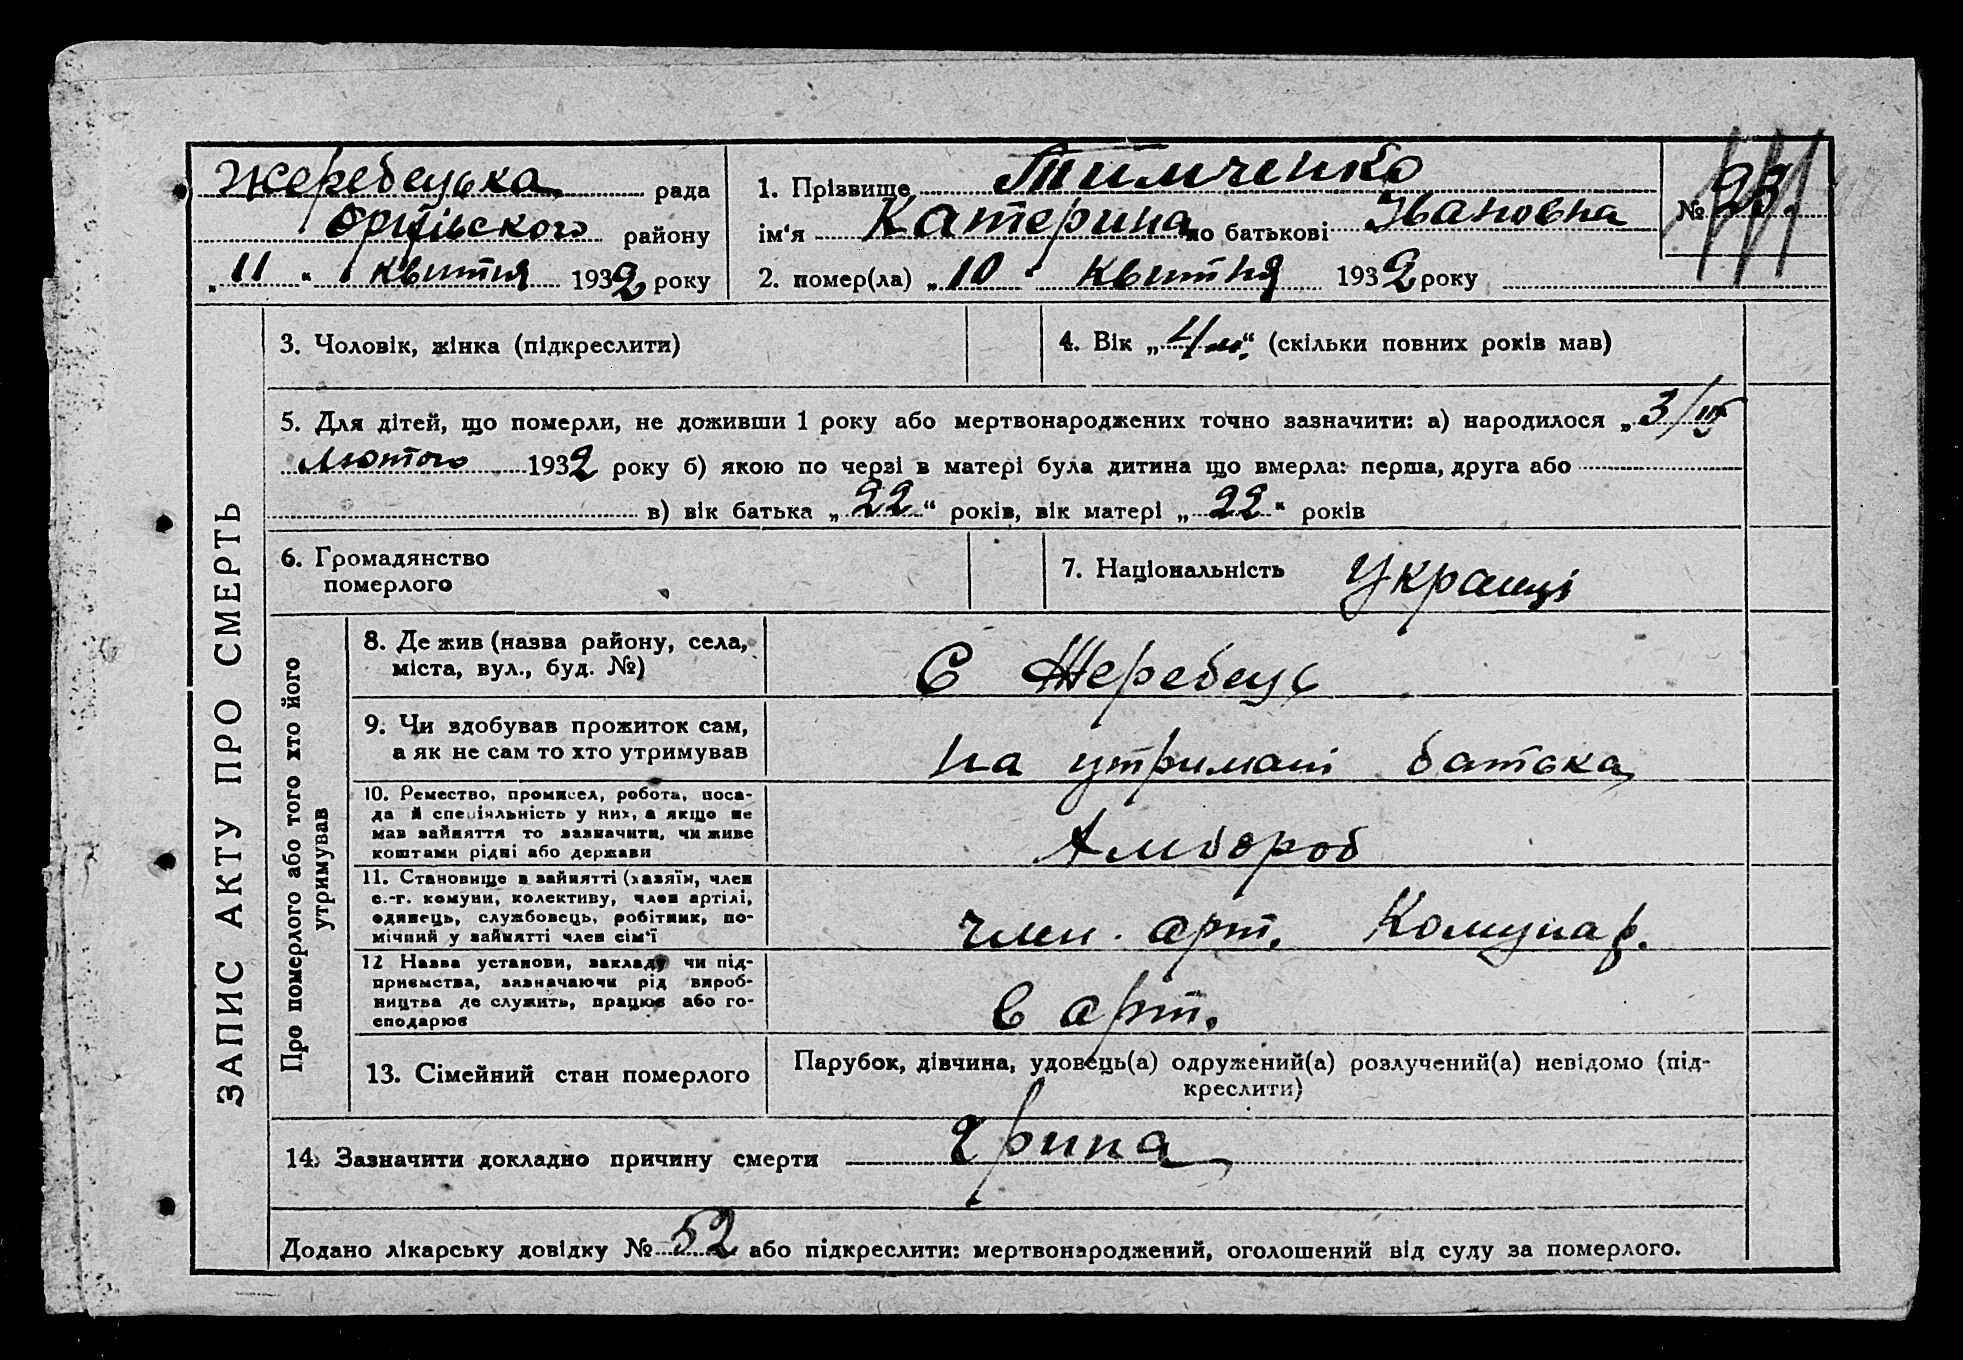 Жеребецька рада
Оріхівського району
„11“ квітня 1932 року
1. Прізвище Тимченко
ім'я Катерина по батькові Івановна
2. помер(ла) „10“ квітня 1932 року
№ 93.
ЗАПИС АКТУ ПРО СМЕРТЬ
3. Чоловік, жінка (підкреслити)
4. Вік „4 м.“ (скільки повних років мав)
5. Для дітей, що померли, не доживши 1 року або мертвонароджених точно зазначити: а) народилося „3/
лютого 1932 року б) якою по черзі в матері була дитина що вмерла: перша, друга або
в) вік батька „22“ років, вік матері „22“ років
6. Громадянство
померлого
7. Національність Украінці
Про померлого або того хто його
утримував
8. Де жив (назва району, села,
міста, вул., буд. №)
С Жеребець
9. Чи вдобував прожиток сам,
а як не сам то хто утримував
на утримані батька
10. Ремество, промисел, робота, поса-
да й спеціяльність у них, а якщо не
мав зайняття то зазначити, чи живе
коштами рідні або держави
хлібороб
11. Становище в зайнятті (хазяїн, член
с.-г. комуни, колективу, член артілі,
одинець, службовець, робітник, по-
мічний у зайнятті член сім'ї
член. арт. Комунар.
12 Назва установи, закладу чи під-
приємства, зазначаючи рід вироб-
ництва де служить, працює або го-
сподарює
в арт.
13. Сімейний стан померлого
Парубок, дівчина, удовець(а) одружений(а) розлучений(а) невідомо (під-
креслити)
14. Зазначити докладно причину смерти грипа
Додано лікарську довідку № 52 або підкреслити: мертвонароджений, оголошений від суду за померлого.